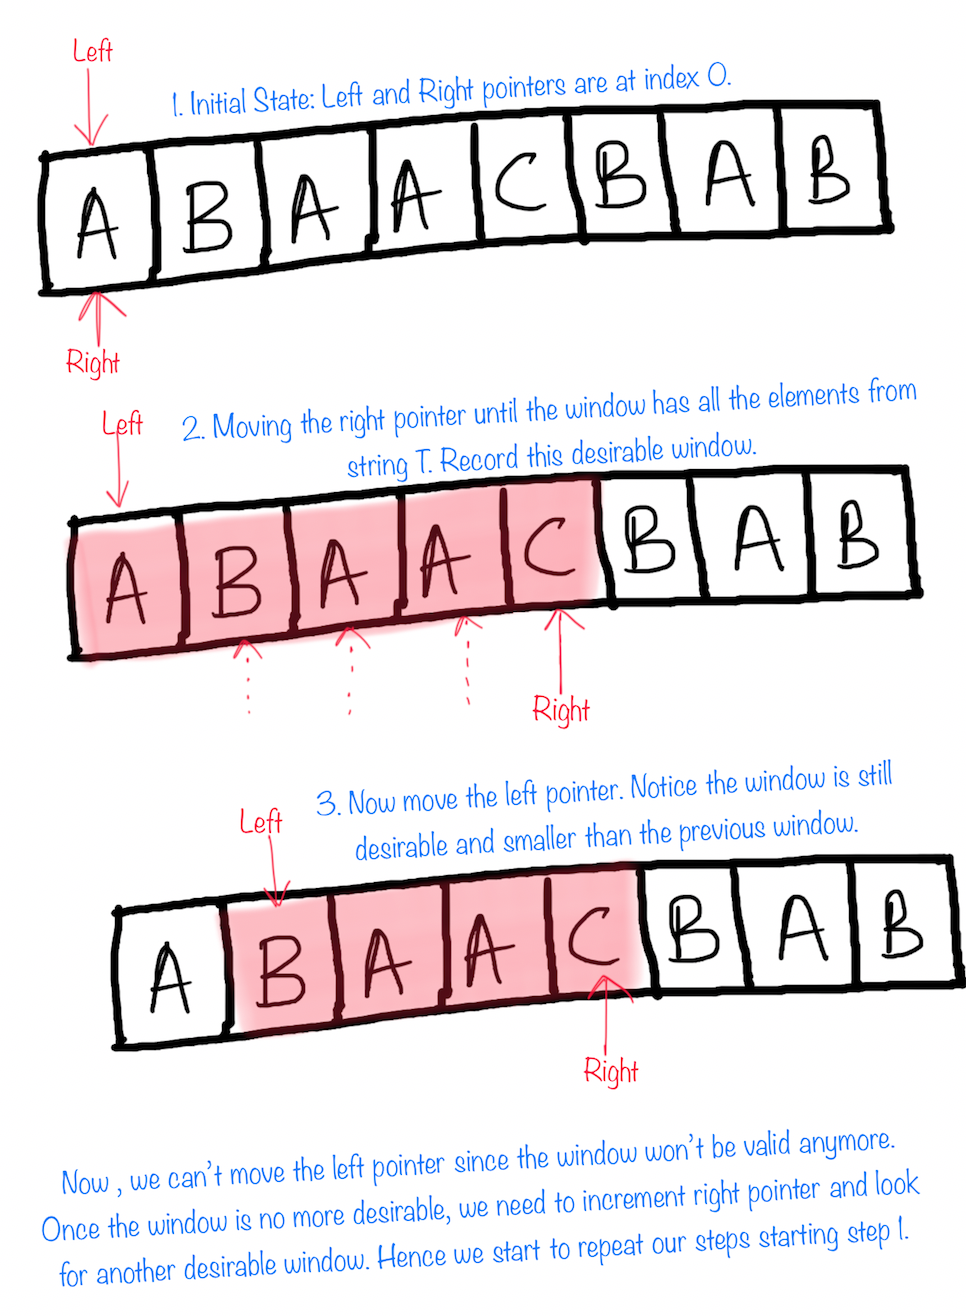 Left
1. Initial State: Left and Right pointers are at index 0.
A B A A C B A B
Right
Left
2. Moving the right pointer until the window has all the elements from
string T. Record this desirable window.
A B A A C B A B
Right
Left
3. Now move the left pointer. Notice the window is still
desirable and smaller than the previous window.
A B A A C B A B
Right
Now , we can't move the left pointer since the window won't be valid anymore.
Once the window is no more desirable, we need to increment right pointer and look
for another desirable window. Hence we start to repeat our steps starting step 1.